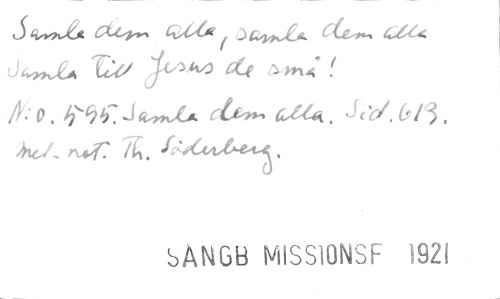 Samla dem alla, samla dem alla
Samla till Jesus de små!
N:o. 595. Samla dem alla. Sid. 613.
med. not. Th. Söderberg.
SANGB MISSIONSF 1921